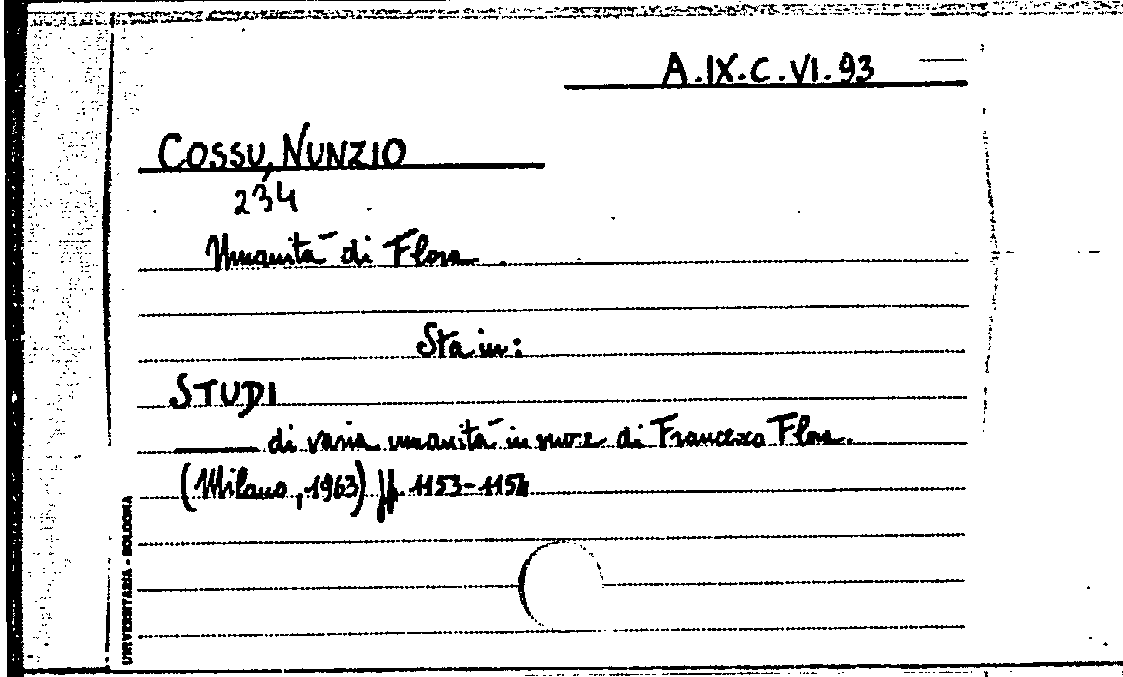 A.IX.C.VI.93
COSSU, NUNZIO
234
Umanità di Flora
Sta in:
STUDI
di varia umanità in mor. e di Francesco Flora.
(Milano, 1963) pp. 1153-1154
UNIVERSITARIA - BOLOGNA